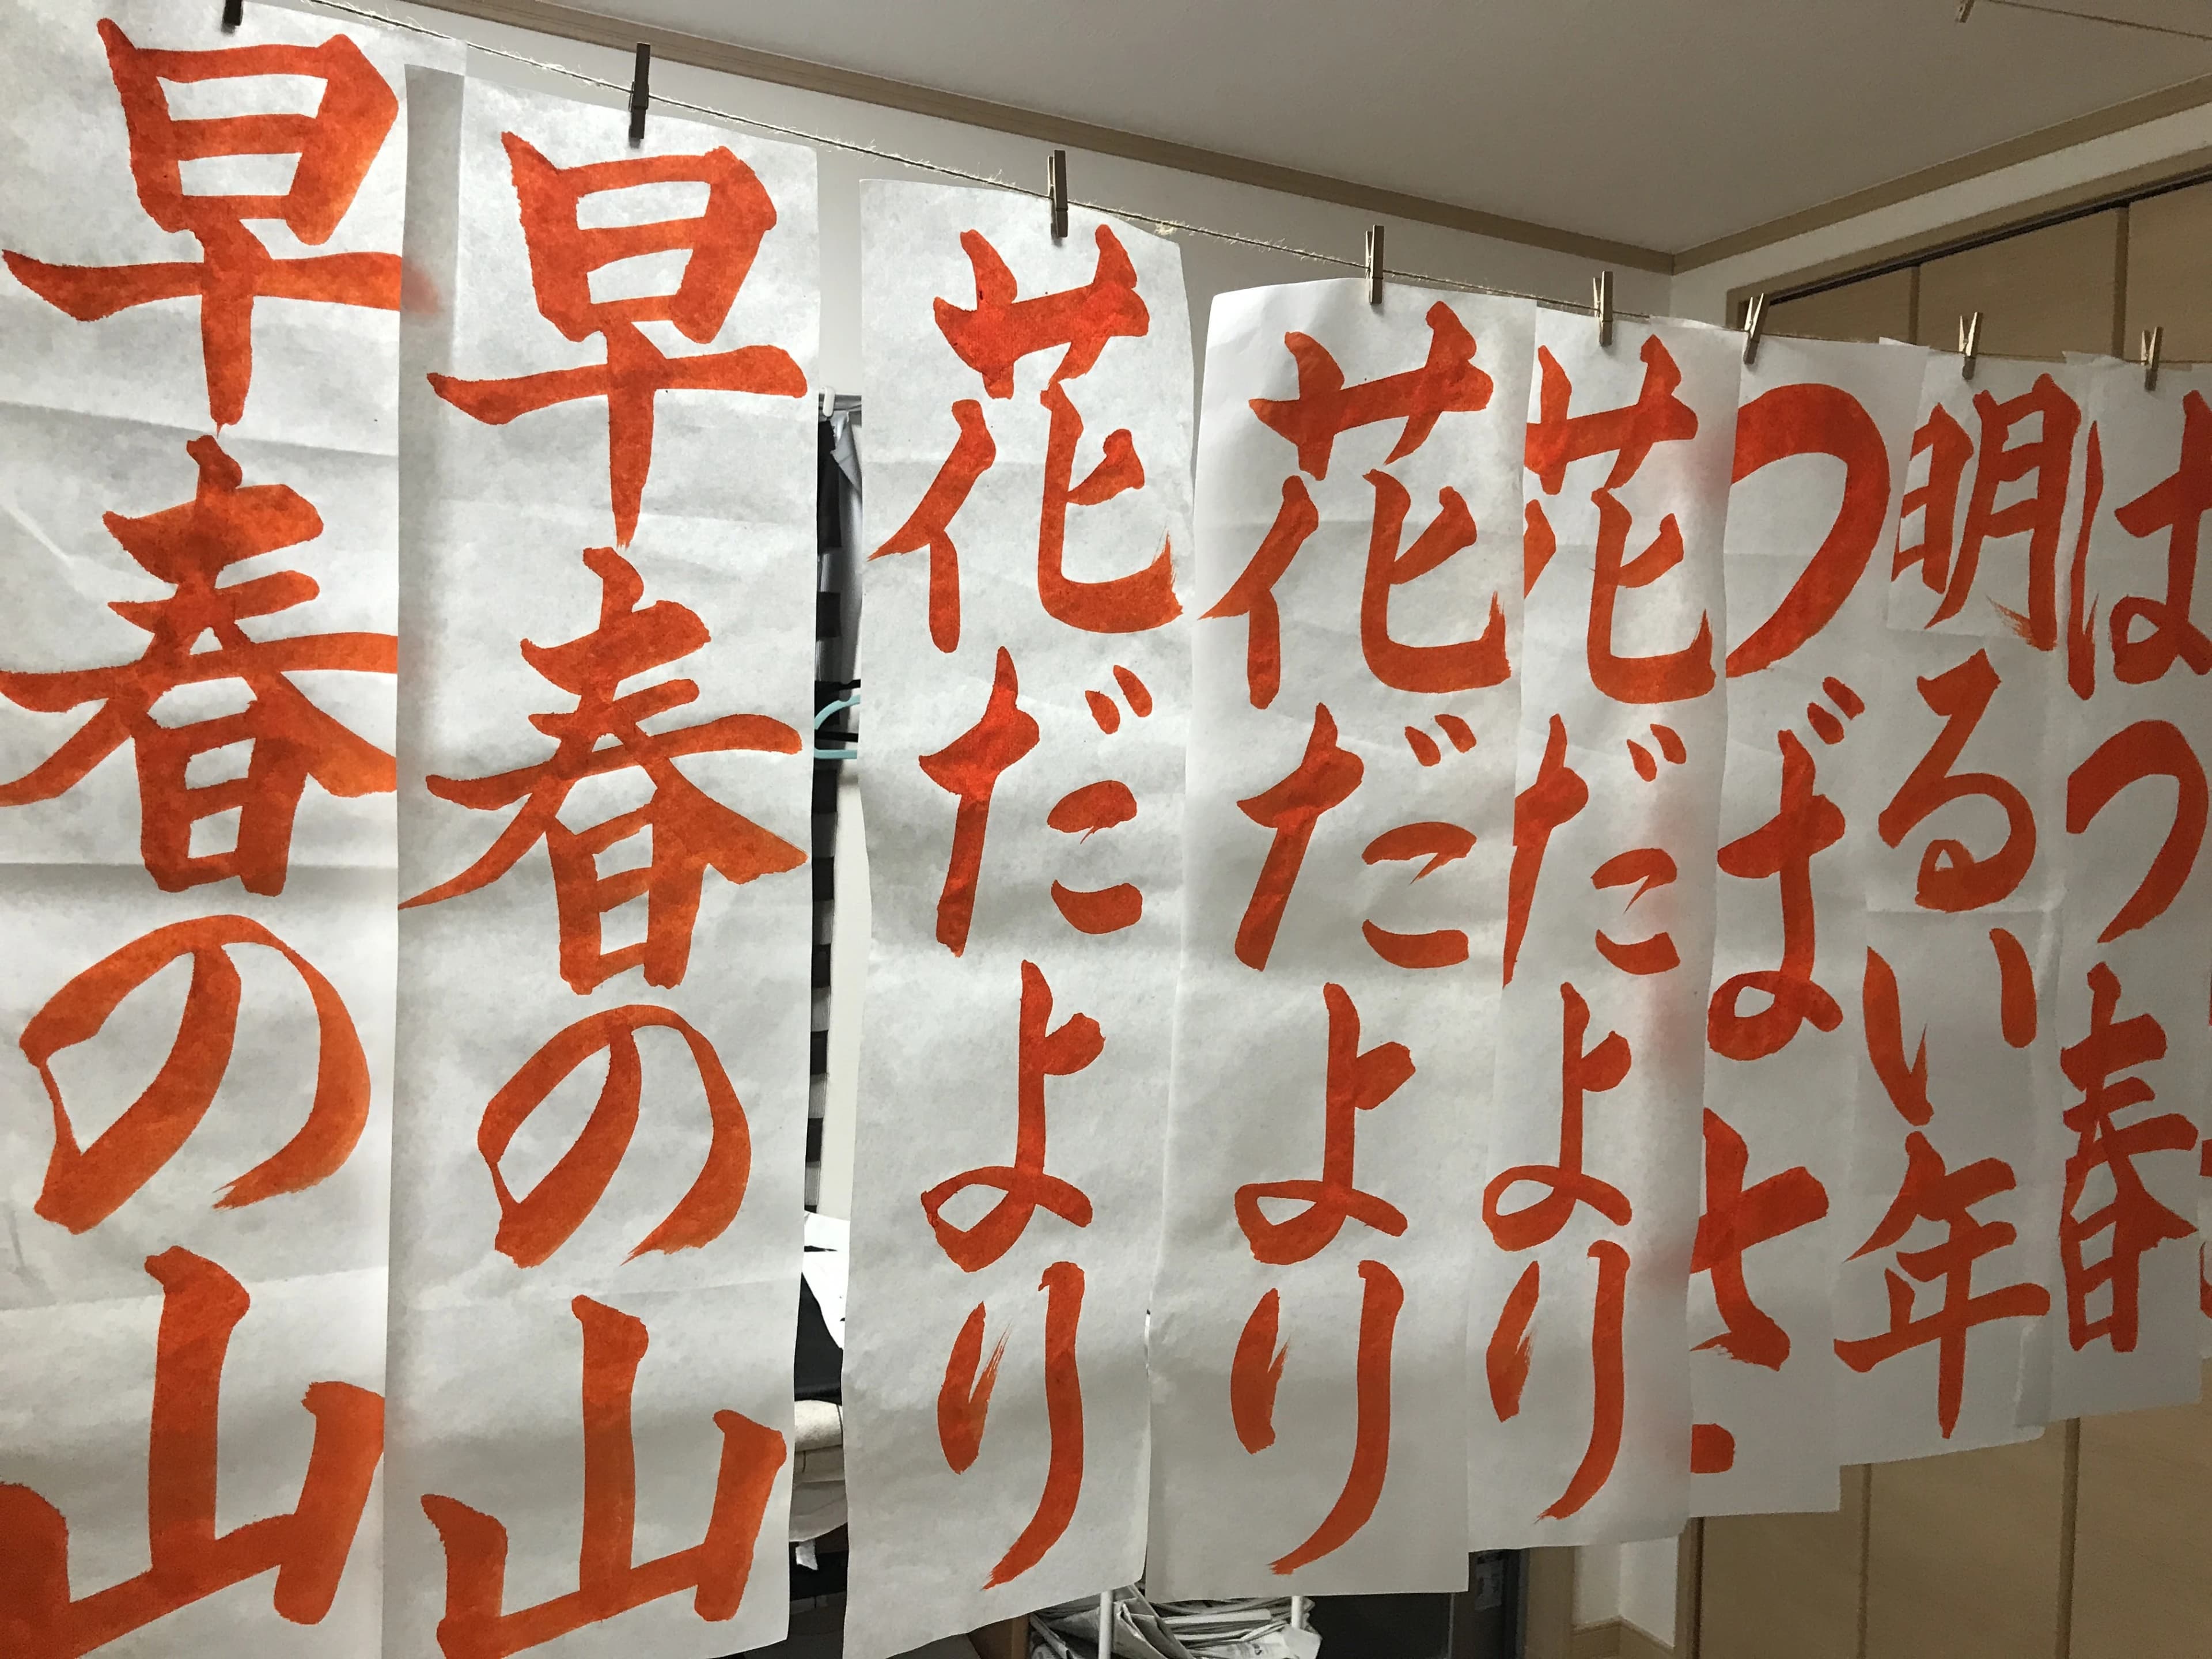 はつ春
明るい年
つばさ
花だより
花だより
花だより
早春の山
早春の山